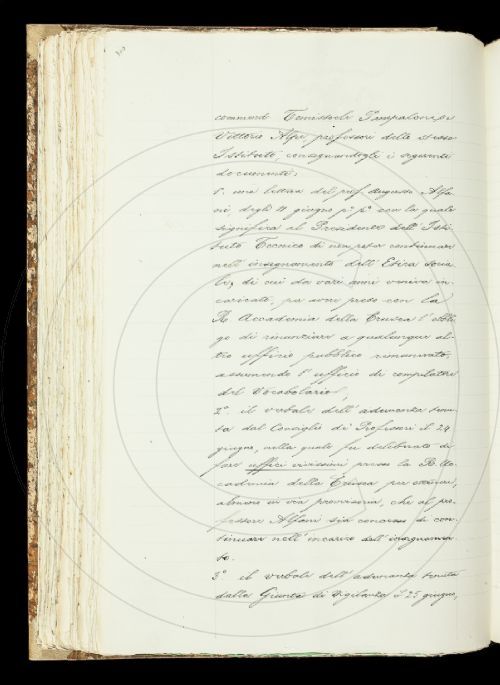 commend. Temistocle Pampaloni, e
Vittorio Alfer, professori dello stesso
Istituto, consegnandogli i seguenti
documenti,
1º una lettera del prof. Augusto Alfa-
ni, degli 11 giugno pº pº con la quale
significa al Presidente dell'Isti-
tuto Tecnico di non poter continuare
nell'insegnamento dell'Etica socia-
le, di cui da vari anni veniva in-
caricato, per aver preso con la
R. Accademia della Crusca l'obbli-
go di rinunziare a qualunque al-
tro ufficio pubblico remunerato,
assumendo l'ufficio di compilatore
del Vocabolario;
2º il verbale dell'adunanza tenu-
ta dal Consiglio di Professori il 24
giugno, nella quale fu deliberato di
fare uffici vivissimi presso la R. Ac-
cademia della Crusca per ottenere,
almeno in via provvisoria, che al pro-
fessore Alfani sia concesso di con-
tinuare nell'incarico dell'insegnamen-
to.
3º il verbale dell'adunanza tenuta
dalla Giunta di Vigilanza il 25 giugno,